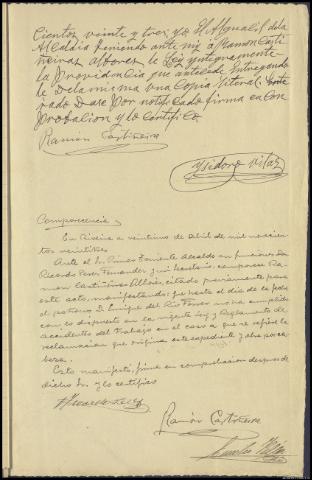 cientos veinte y tres, yo El Alguacil de la
Alcaldia teniendo ante mi a Ramon Casti
ñeiras Albores le Ley yntegramente
la providencia que antecede Entregando
le De la misma una Copia literal: Ente
rado Dase por notificado firma en Com
probacion y lo Certifico
Ramón Castiñeira
Ysidoro Vidal
Comparecencia
En Riveira a veintiuno de Abril de mil novecien
tos veintitres.
Ante el Sr. Primer Teniente Alcalde en funciones Dn
Ricardo Perez Fernandez y mi Secretario, comparece Ra
mon Castiñeiras Albores, citado previamente para
este acto, manifestando: que hasta el dia de la fecha
el patrono D. Enrique del Rio no ha cumplido
con lo dispuesto en la vigente Ley y Reglamento de
accidentes del trabajo en el caso a que se refiere la
reclamacion que origina este expediente y obra por ca
beza.
Esto manifestó, firma en comprobacion despues de
dicho Sr. y lo certifico
Ricardo Perez
Ramón Castiñeira